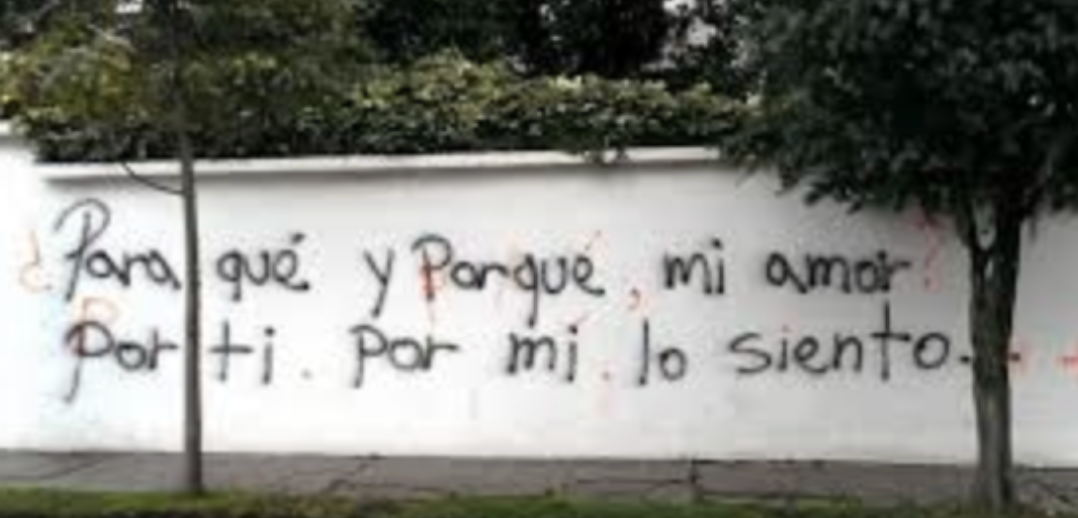 ¿Para qué y Porqué, mi amor?
Por ti. Por mí. lo siento...